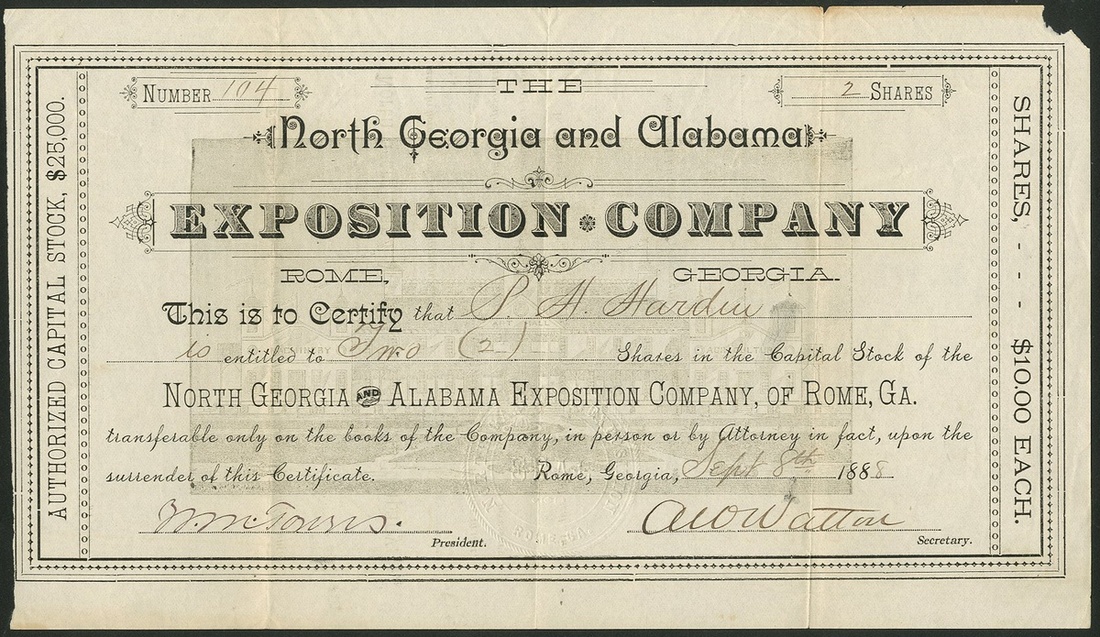 THE
NUMBER 104
2 SHARES
North Georgia and Alabama
EXPOSITION COMPANY
ROME, GEORGIA.
This is to Certify that P. H. Hardin
is entitled to Two (2) Shares in the Capital Stock of the
NORTH GEORGIA AND ALABAMA EXPOSITION COMPANY, OF ROME, GA.
transferable only on the books of the Company, in person or by Attorney in fact, upon the
surrender of this Certificate. Rome, Georgia, Sept 8th 1888
President.
Secretary.
AUTHORIZED CAPITAL STOCK, $25,000.
SHARES, - - - $10.00 EACH.